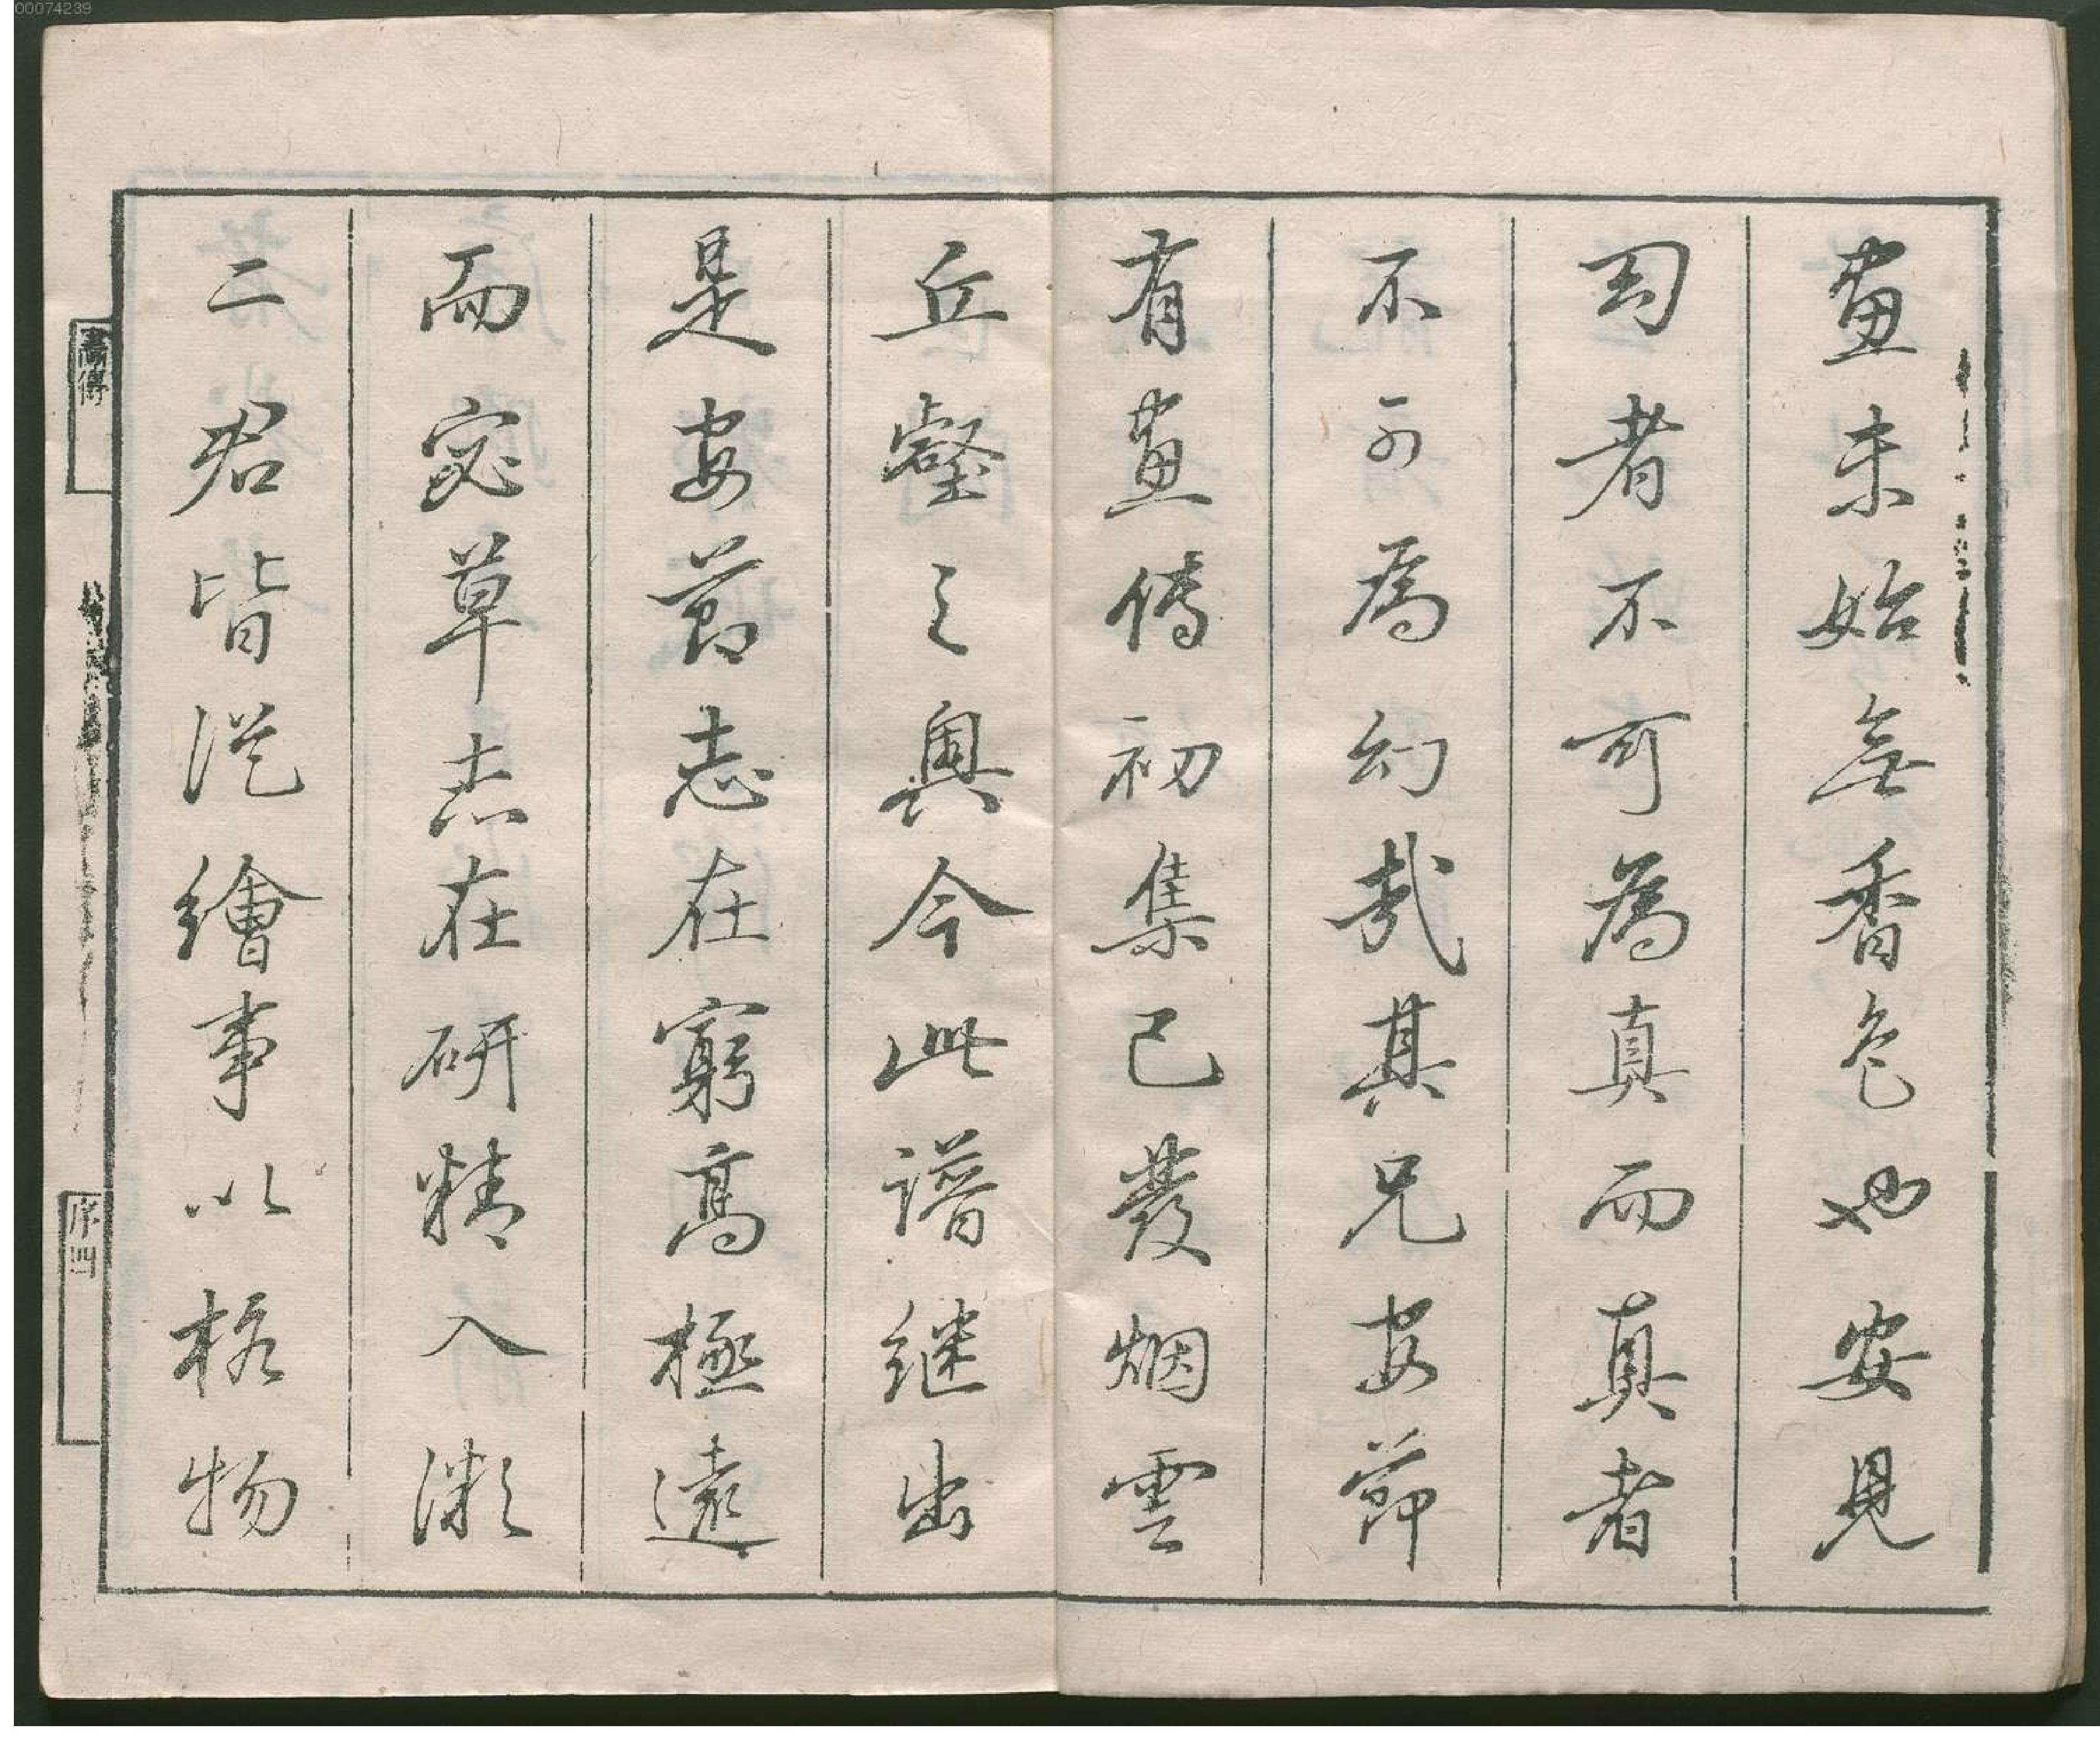 畫未始無香色也安見
幻者不可為真而真者
不可為幻哉其兄安節
有畫傳初集已發烟雲
丘壑之奧今此譜繼出
是安節志在窮高極遠
而宓草志在研精入微
二君皆從繪事以格物
畫傳
序四
00074239